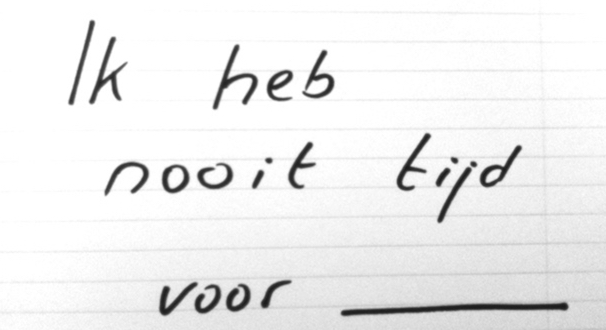 Ik heb
nooit tijd
voor ______